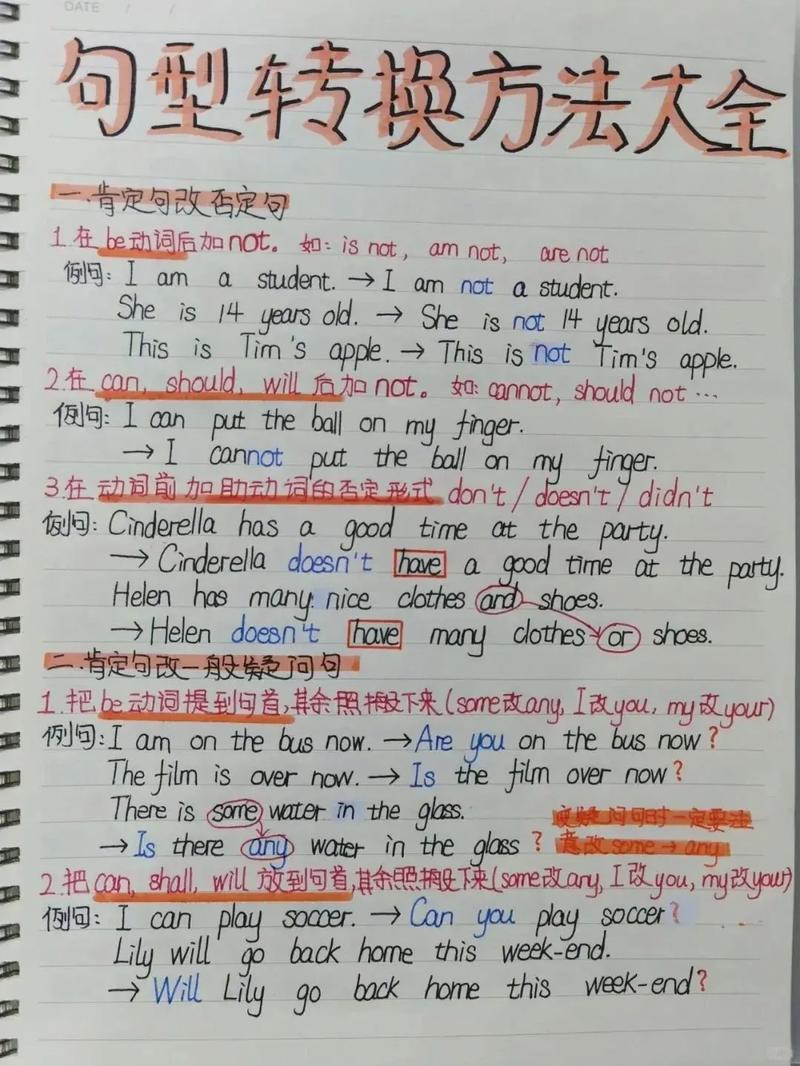 DATE / /
句型转换方法大全
一.肯定句改否定句
1.在be动词后加not。如: is not, am not, are not
例句: I am a student. → I am not a student.
She is 14 years old. → She is not 14 years old.
This is Tim's apple. → This is not Tim's apple.
2.在can, should, will后加not。如: cannot, should not…
例句: I can put the ball on my finger.
→ I cannot put the ball on my finger.
3.在动词前加助动词的否定形式 don't / doesn't / didn't
例句: Cinderella has a good time at the party.
→ Cinderella doesn't have a good time at the party.
Helen has many nice clothes and shoes.
→ Helen doesn't have many clothes or shoes.
二.肯定句改一般疑问句
1.把be动词提到句首,其余照搬下来(some改any, I改you, my改your)
例句: I am on the bus now. → Are you on the bus now?
The film is over now. → Is the film over now?
There is some water in the glass.
→ Is there any water in the glass?
变疑问句时一定要注
意改some → any
2.把can, shall, will放到句首,其余照搬下来(some改any, I改you, my改your)
例句: I can play soccer. → Can you play soccer?
Lily will go back home this week-end.
→ Will Lily go back home this week-end?